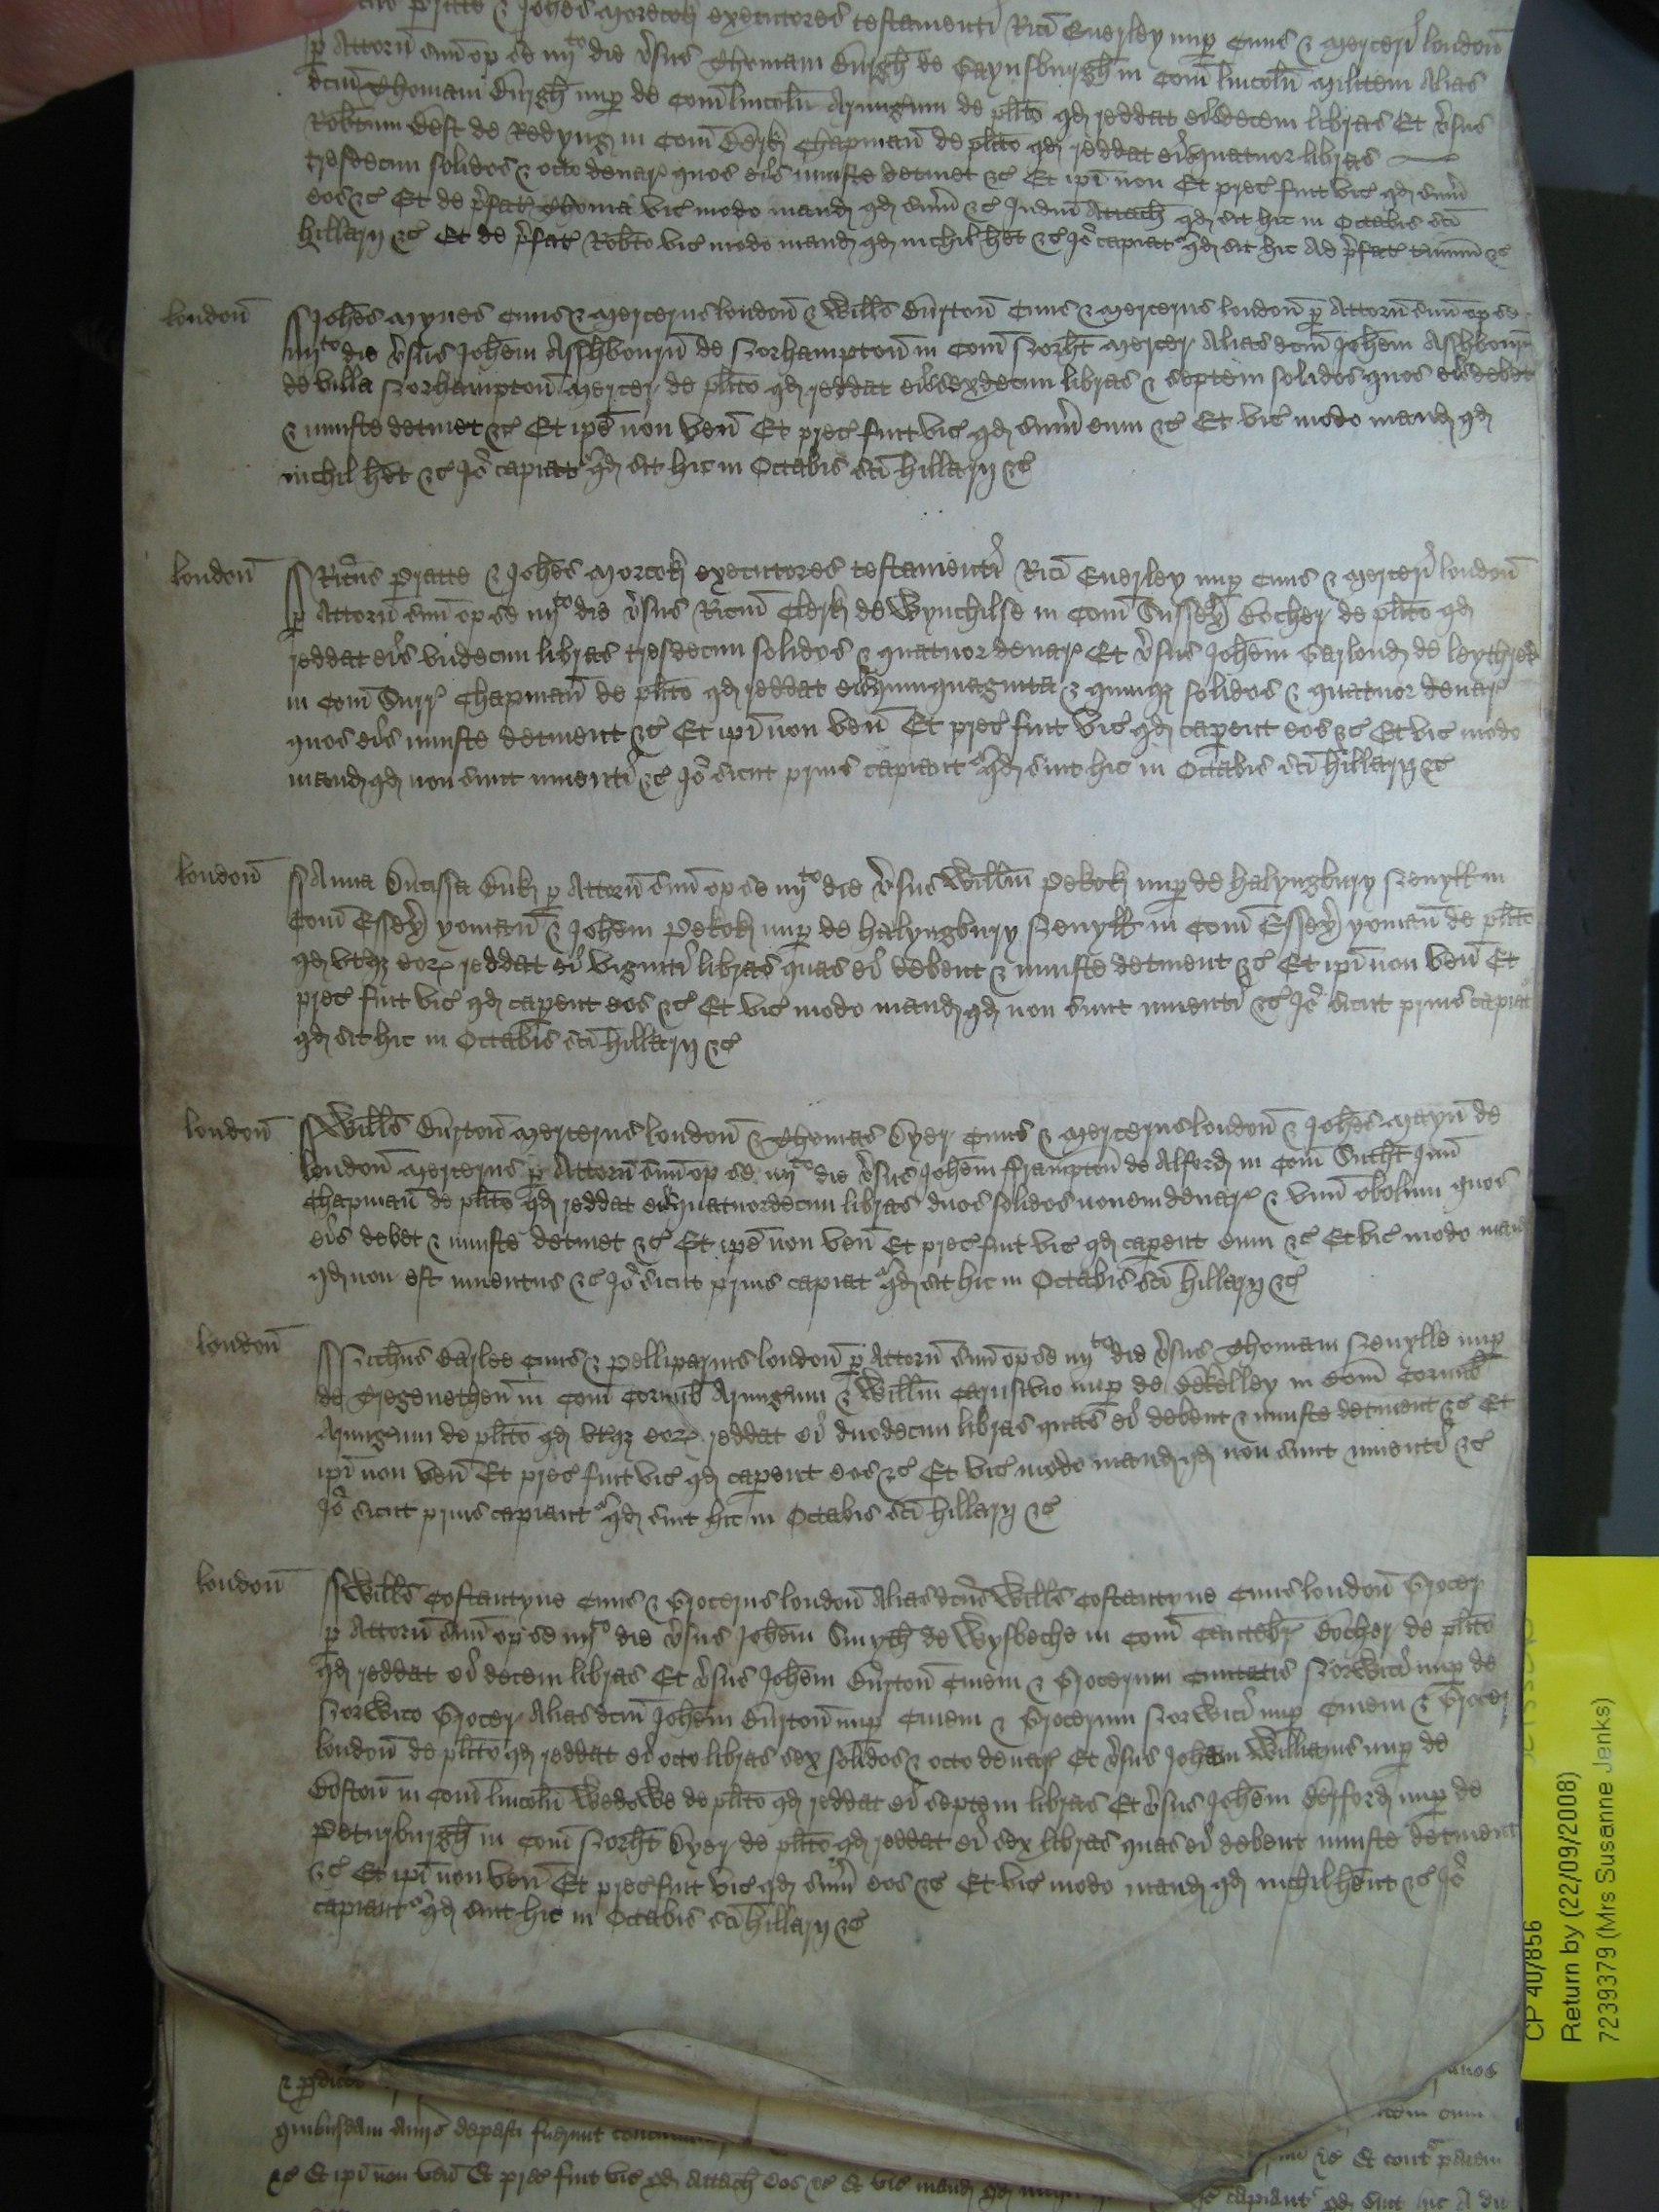 Pratte & Johes Morcok executores testamenti Rici Everley nup Civis & Merceri london
p Attorn suu op se iiij to die vsus Thomam Burgh de Gaynsburgh in Com lincoln Militem Alias
dcm Thomam Burgh nup de Com lincoln Armigum de plito qd reddat eis decem libras Et vsus
Robtum Best de Redyng in Com Berk Chapman de plito qd reddat eis quatuor libras
tresdecim solidos & octo denar quos eis iniuste detinet &c Et ipi non Et prec fuit vic qd sum
eos &c Et de pfat Thoma vic modo mand qd sum &c Attach qd sit hic in Octabis sci
hillarij &c Et de pfat Robto vic modo mand qd nichil het &c Io capiat qd sit hic Ad pfat tminu &c
london Johes Mynes Civis & Mercerus london & Wills Burton Civis & Mercerus london p Attorn suu op se
iiij to die vsus Johem Asshbourn de Norhampton in Com Norht Mercer Alias dcm Johem Asshbourn
de villa Norhampton Mercer de plito qd reddat eis sexdecim libras & septem solidos quos eis debet
& iniuste detinet &c Et ipe non ven Et prec fuit vic qd sum eum &c Et vic modo mand qd
nichil het &c Io capiat qd sit hic in Octabis sci hillarij &c
london Ricus Pratte & Johes Morcok executores testamenti Rici Everley nup Civis & Merceri london
p Attorn suu op se iiij to die vsus Ricm Clerk de Wynchilse in Com Sussex Bocher de plito qd
reddat eis undecim libras tresdecim solidos & quatuor denar Et vsus Johem Garlond de leythred
in Com Surr Chapman de plito qd reddat eis quinquaginta & quinqz solidos & quatuor denar
quos eis iniuste detinent &c Et ipi non ven Et prec fuit vic qd caperent eos &c Et vic modo
mand qd non sunt inventi &c Io sicut prius capiant qd sint hic in Octabis sci hillarij &c
london Anna Ducissa Buk p Attorn suu op se iiij to die vsus Willm Pekok nup de halyngbury Nevyll in
Com Essex yoman & Johem Pekok nup de halyngbury Nevyll in Com Essex yoman de plito
qd utqz eor reddat ei viginti libras quas ei debent & iniuste detinent &c Et ipi non ven Et
prec fuit vic qd caperent eos &c Et vic modo mand qd non sunt inventi &c Io sicut prius capiat
qd sit hic in Octabis sci hillarij &c
london Wills Burton Mercerus london & Thomas Dyer Civis & Mercerus london & Johes Mayn de
london Mercerus p Attorn suu op se iiij to die vsus Johem fframpton de Alford in Com Sutht
Chapman de plito qd reddat eis quatuordecim libras duos solidos novem denar & unu obolum quos
eis debet & iniuste detinet &c Et ipe non ven Et prec fuit vic qd caperent eum &c Et vic modo mand
qd non est inventus &c Io sicut prius capiat qd sit hic in Octabis sci hillarij &c
london Nichus Barlee Civis & Pelliparius london p Attorn suu op se iiij to die vsus Thomam Nevylle nup
de Tregenethen in Com Cornub Armigum & Willm nup de Bekelley in Com Cornub
Armigum de plito qd utqz eor reddat ei duodecim libras quas ei debent & iniuste detinent &c Et
ipi non ven Et prec fuit vic qd caperent eos &c Et vic modo mand qd non sunt inventi &c
Io sicut prius capiant qd sint hic in Octabis sci hillarij &c
london Wills Costantyne Civis & Grocerus london Alias dcus Wills Costantyne Civis london Grocer
p Attorn suu op se iiij to die vsus Johem Smyth de Wysbeche in Com Cantebr Bocher de plito
qd reddat ei decem libras Et vsus Johem Burton Civem & Grocerum Civitatis Norwici nup de
Norwico Grocer Alias dcm Johem Burton nup Civem & Grocerum Norwici nup Civem & Grocer
london de plito qd reddat ei octo libras sex solidos & octo denar Et vsus Johem Williams nup de
Boston in Com lincoln Wedowe de plito qd reddat ei septem libras Et vsus Johem Derford nup de
Peturburgh in Com Norht Dyer de plito qd reddat ei sex libras quas ei debent iniuste detinent
&c Et ipi non ven Et prec fuit vic qd sum eos &c Et vic modo mand qd nichil hent &c Io
capiant qd sint hic in Octabis sci hillarij &c
quibusdam aviis depasti fuerunt
&c Et ipi non ven Et prec fuit vic qd attach eos &c Et vic mand qd
&c Et cont
capiant qd sint hic A die
CP 40/856
Return by (22/09/2008)
7239379 (Mrs Susanne Jenks)